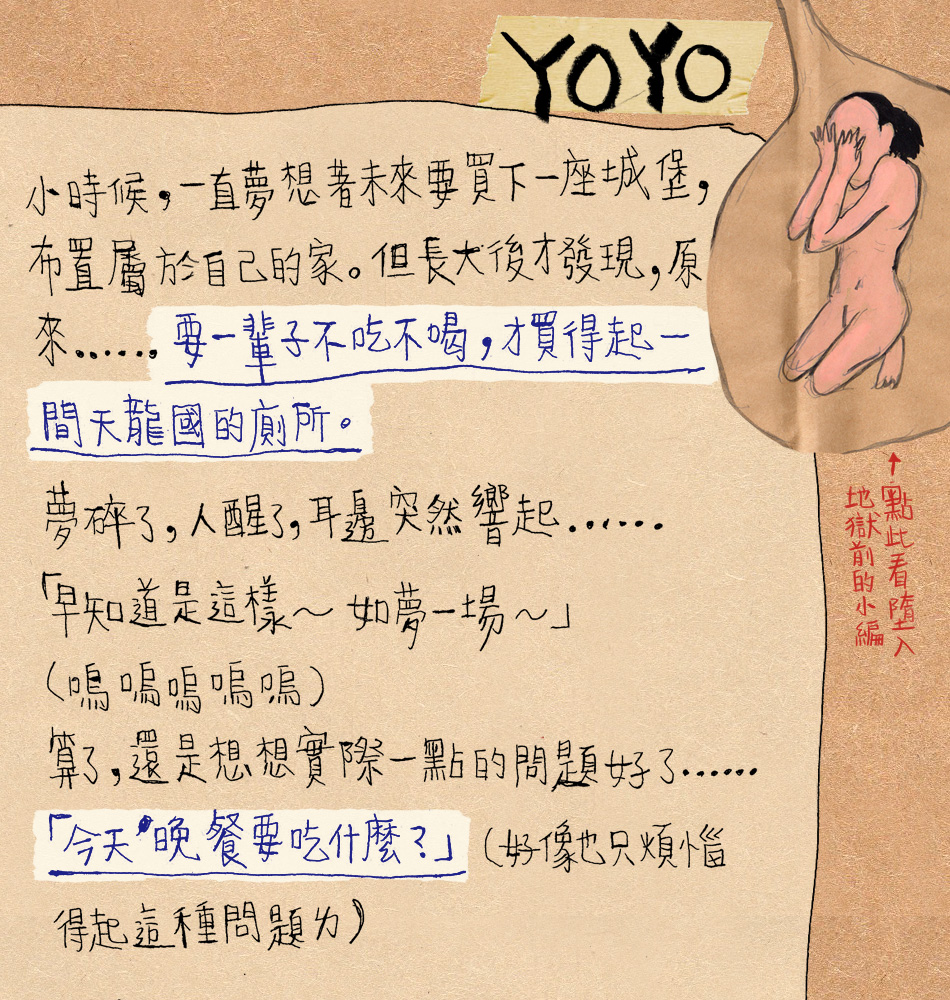 YOYO
小時候，一直夢想著未來要買下一座城堡，
布置屬於自己的家。但長大後才發現，原
來......要一輩子不吃不喝，才買得起一
間天龍國的廁所。
夢碎了，人醒了，耳邊突然響起......
「早知道是這樣～如夢一場～」
（嗚嗚嗚嗚嗚）
算了，還是想想實際一點的問題好了......
「今天晚餐要吃什麼？」（好像也只煩惱
得起這種問題ㄌ）
↑點此看墮入
地獄前的小編